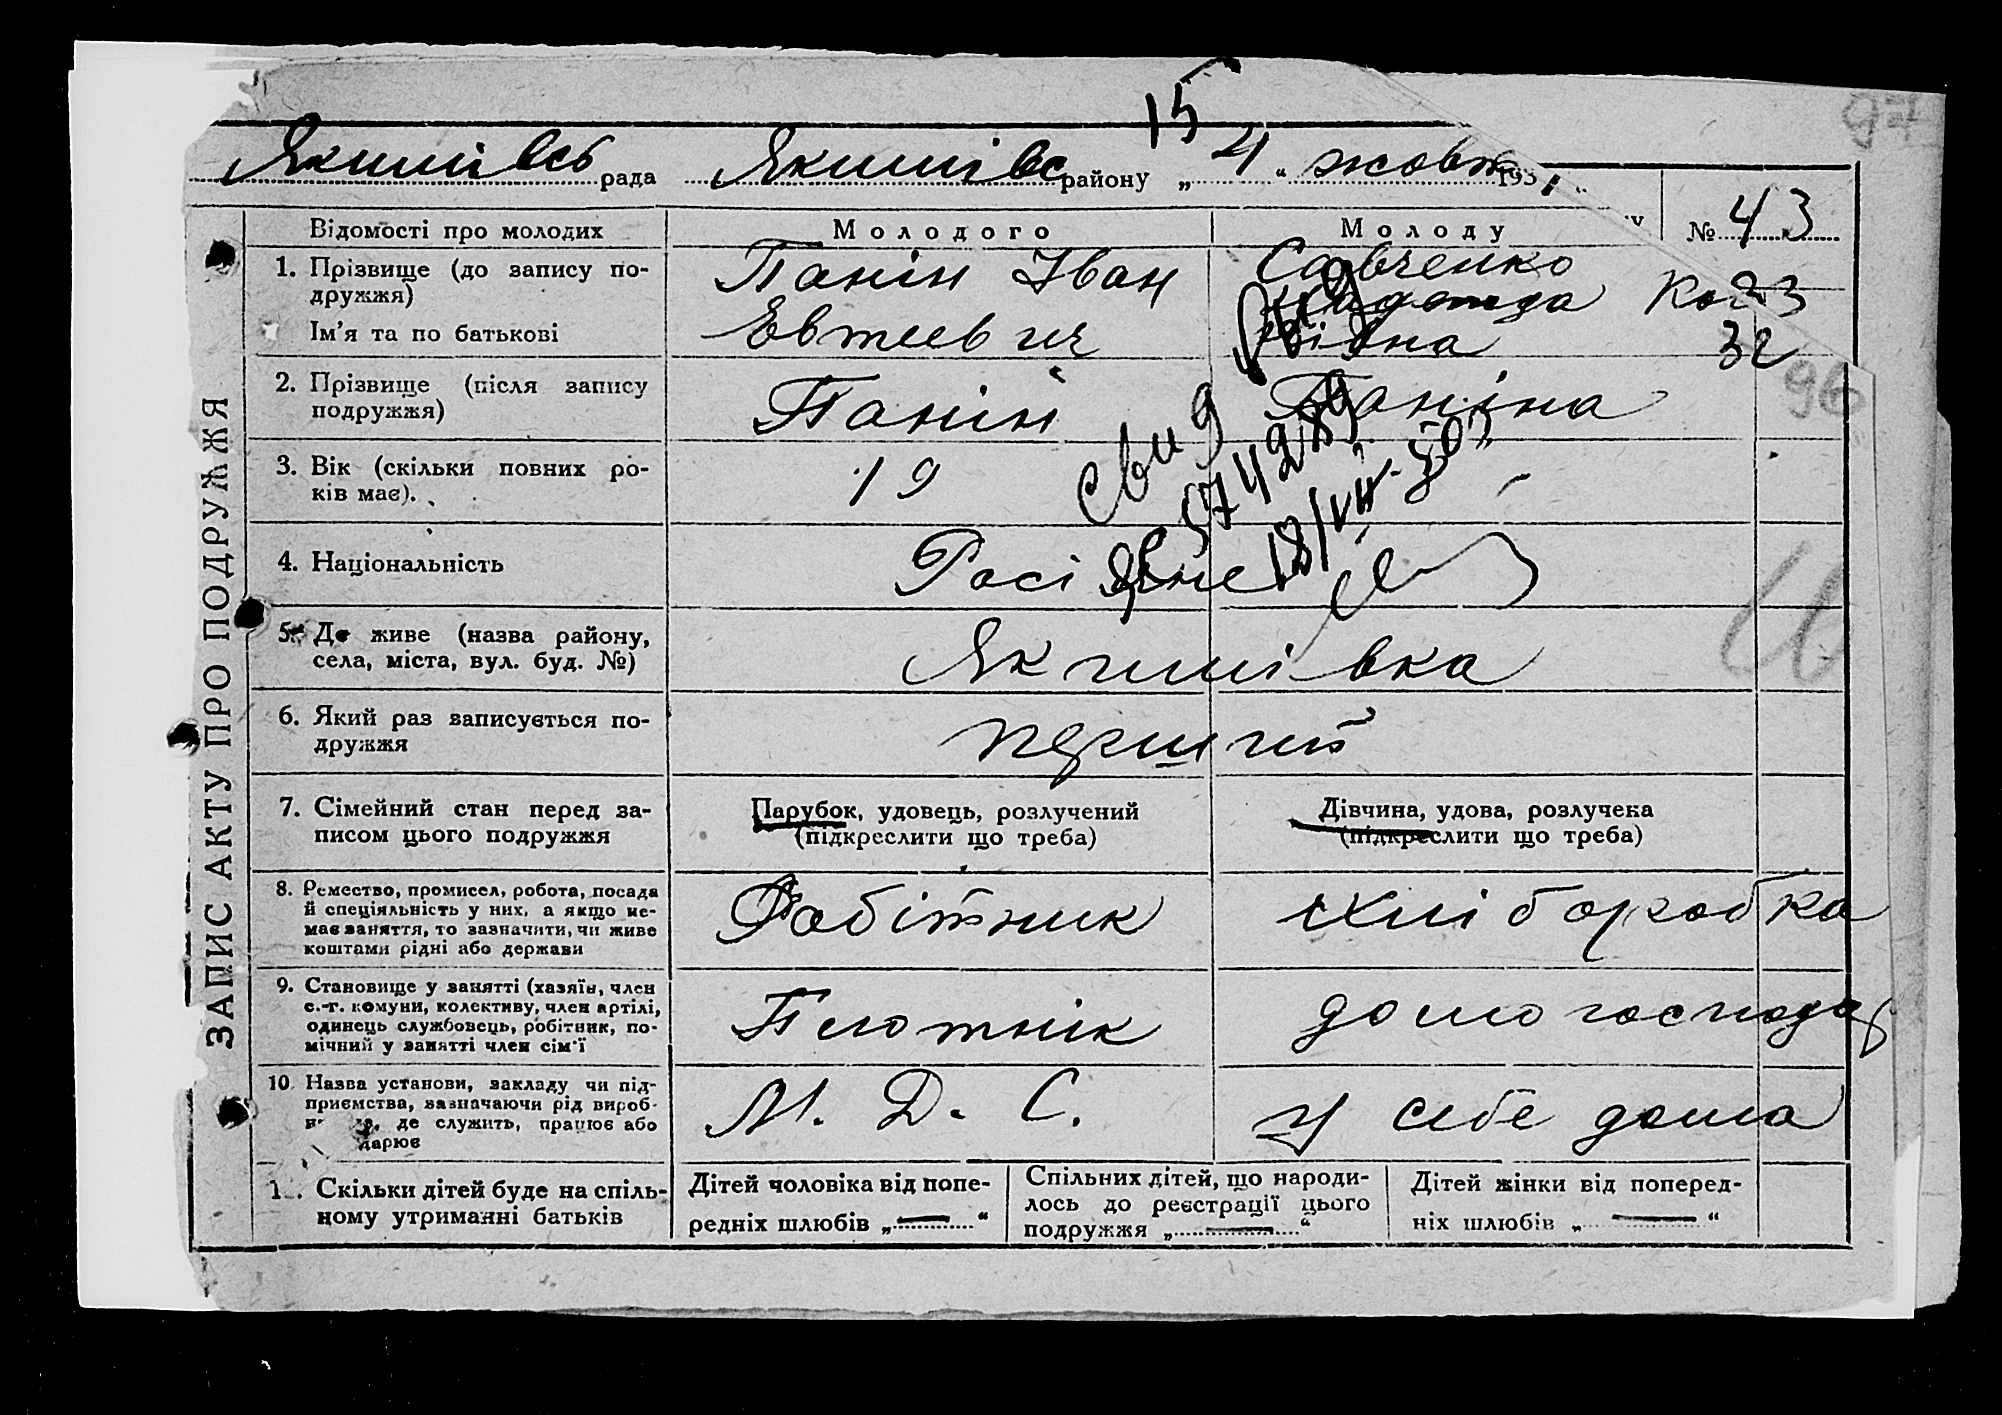 15
97
Якимівсь рада Якимівс району „ 4 “ жовт 193
№ 43
ЗАПИС АКТУ ПРО ПОДРУЖЖЯ
Відомості про молодих
Молодого
Молоду
1. Прізвище (до запису по-
дружжя)
Ім'я та по батькові
Панін Іван
Евтеевич
Савченко
32
2. Прізвище (після запису
подружжя)
Панін
Паніна
96
3. Вік (скільки повних ро-
ків має).
19
свид
4. Національність
Росі
5. Де живе (назва району,
села, міста, вул. буд. №)
Якимівка
6. Який раз записується по-
дружжя
перший
7. Сімейний стан перед за-
писом цього подружжя
Парубок, удовець, розлучений
(підкреслити що треба)
Дівчина, удова, розлучека
(підкреслити що треба)
8. Ремество, промисел, робота, посада
й спеціяльність у них, а якщо не-
має заняття, то зазначити, чи живе
коштами рідні або держави
Робітник
хліборобка
9. Становище у занятті (хазяїн, член
с.-г. комуни, колективу, член артілі,
одинець службовець, робітник, по-
мічний у занятті член сім'ї
Плотнік
домогосподар
10. Назва установи, закладу чи під-
приємства, зазначаючи рід вироб-
де служить, працює або
дарює
М. Д. С.
у себе дома
1 . Скільки дітей буде на спіль-
ному утриманні батьків
Дітей чоловіка від попе-
редніх шлюбів „ — “
Спільних дітей, що народи-
лось до реєстрації цього
подружжя „ — “
Дітей жінки від поперед-
ніх шлюбів „ — “